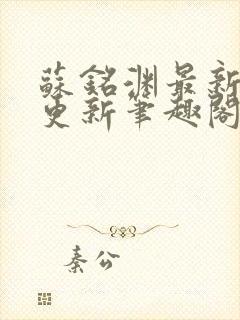 蘇銘淵最新
更新筆趣閣
秦公